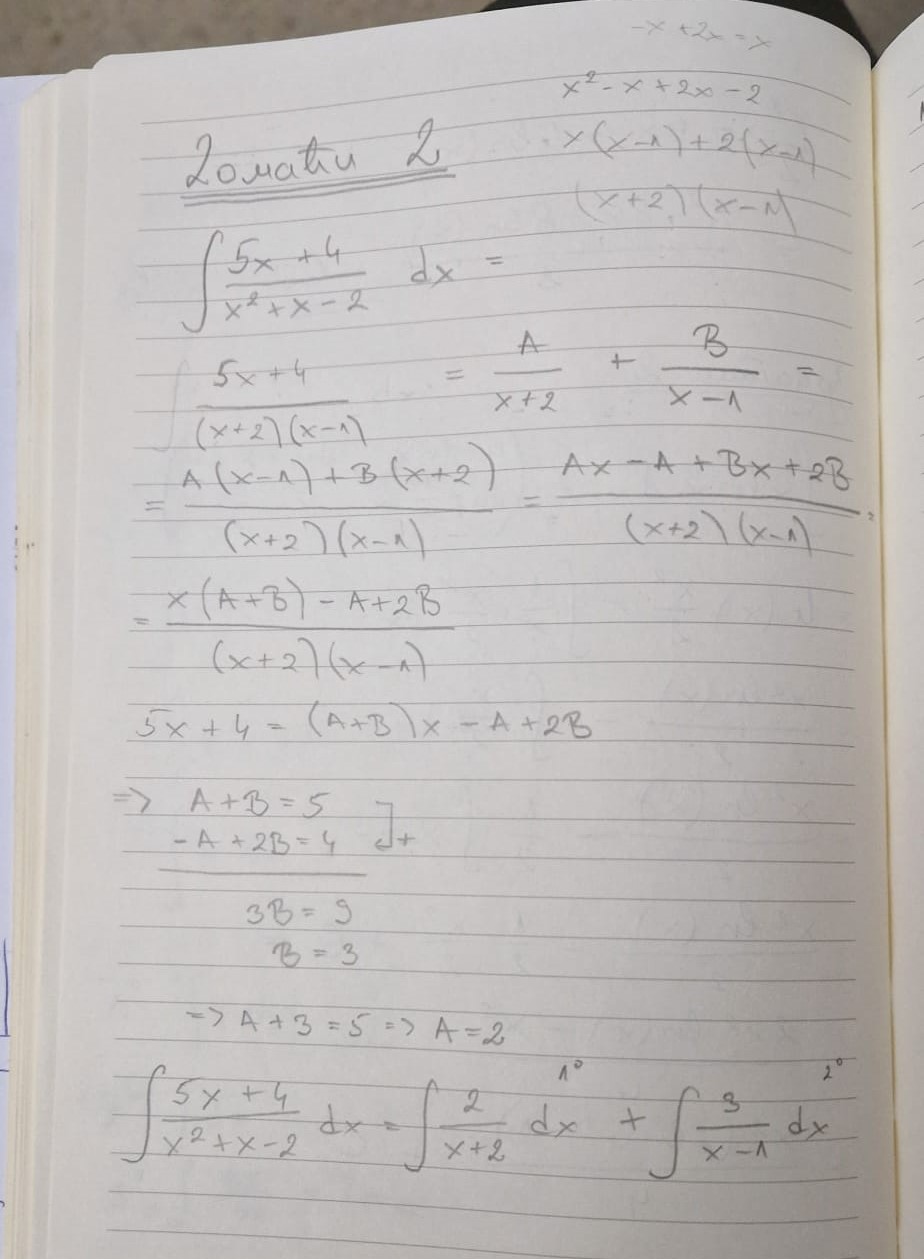 -x + 2x = x
x² - x + 2x - 2
x(x-1) + 2(x-1)
(x+2)(x-1)
Domaћи 2
∫ (5x + 4)/(x² + x - 2) dx =
(5x + 4)/((x+2)(x-1)) = A/(x+2) + B/(x-1) =
= (A(x-1) + B(x+2))/((x+2)(x-1)) = (Ax - A + Bx + 2B)/((x+2)(x-1)) =
= (x(A+B) - A + 2B)/((x+2)(x-1))
5x + 4 = (A+B)x - A + 2B
=> A + B = 5
-A + 2B = 4 +
3B = 9
B = 3
=> A + 3 = 5 => A = 2
1° 2°
∫ (5x + 4)/(x² + x - 2) dx = ∫ 2/(x+2) dx + ∫ 3/(x-1) dx